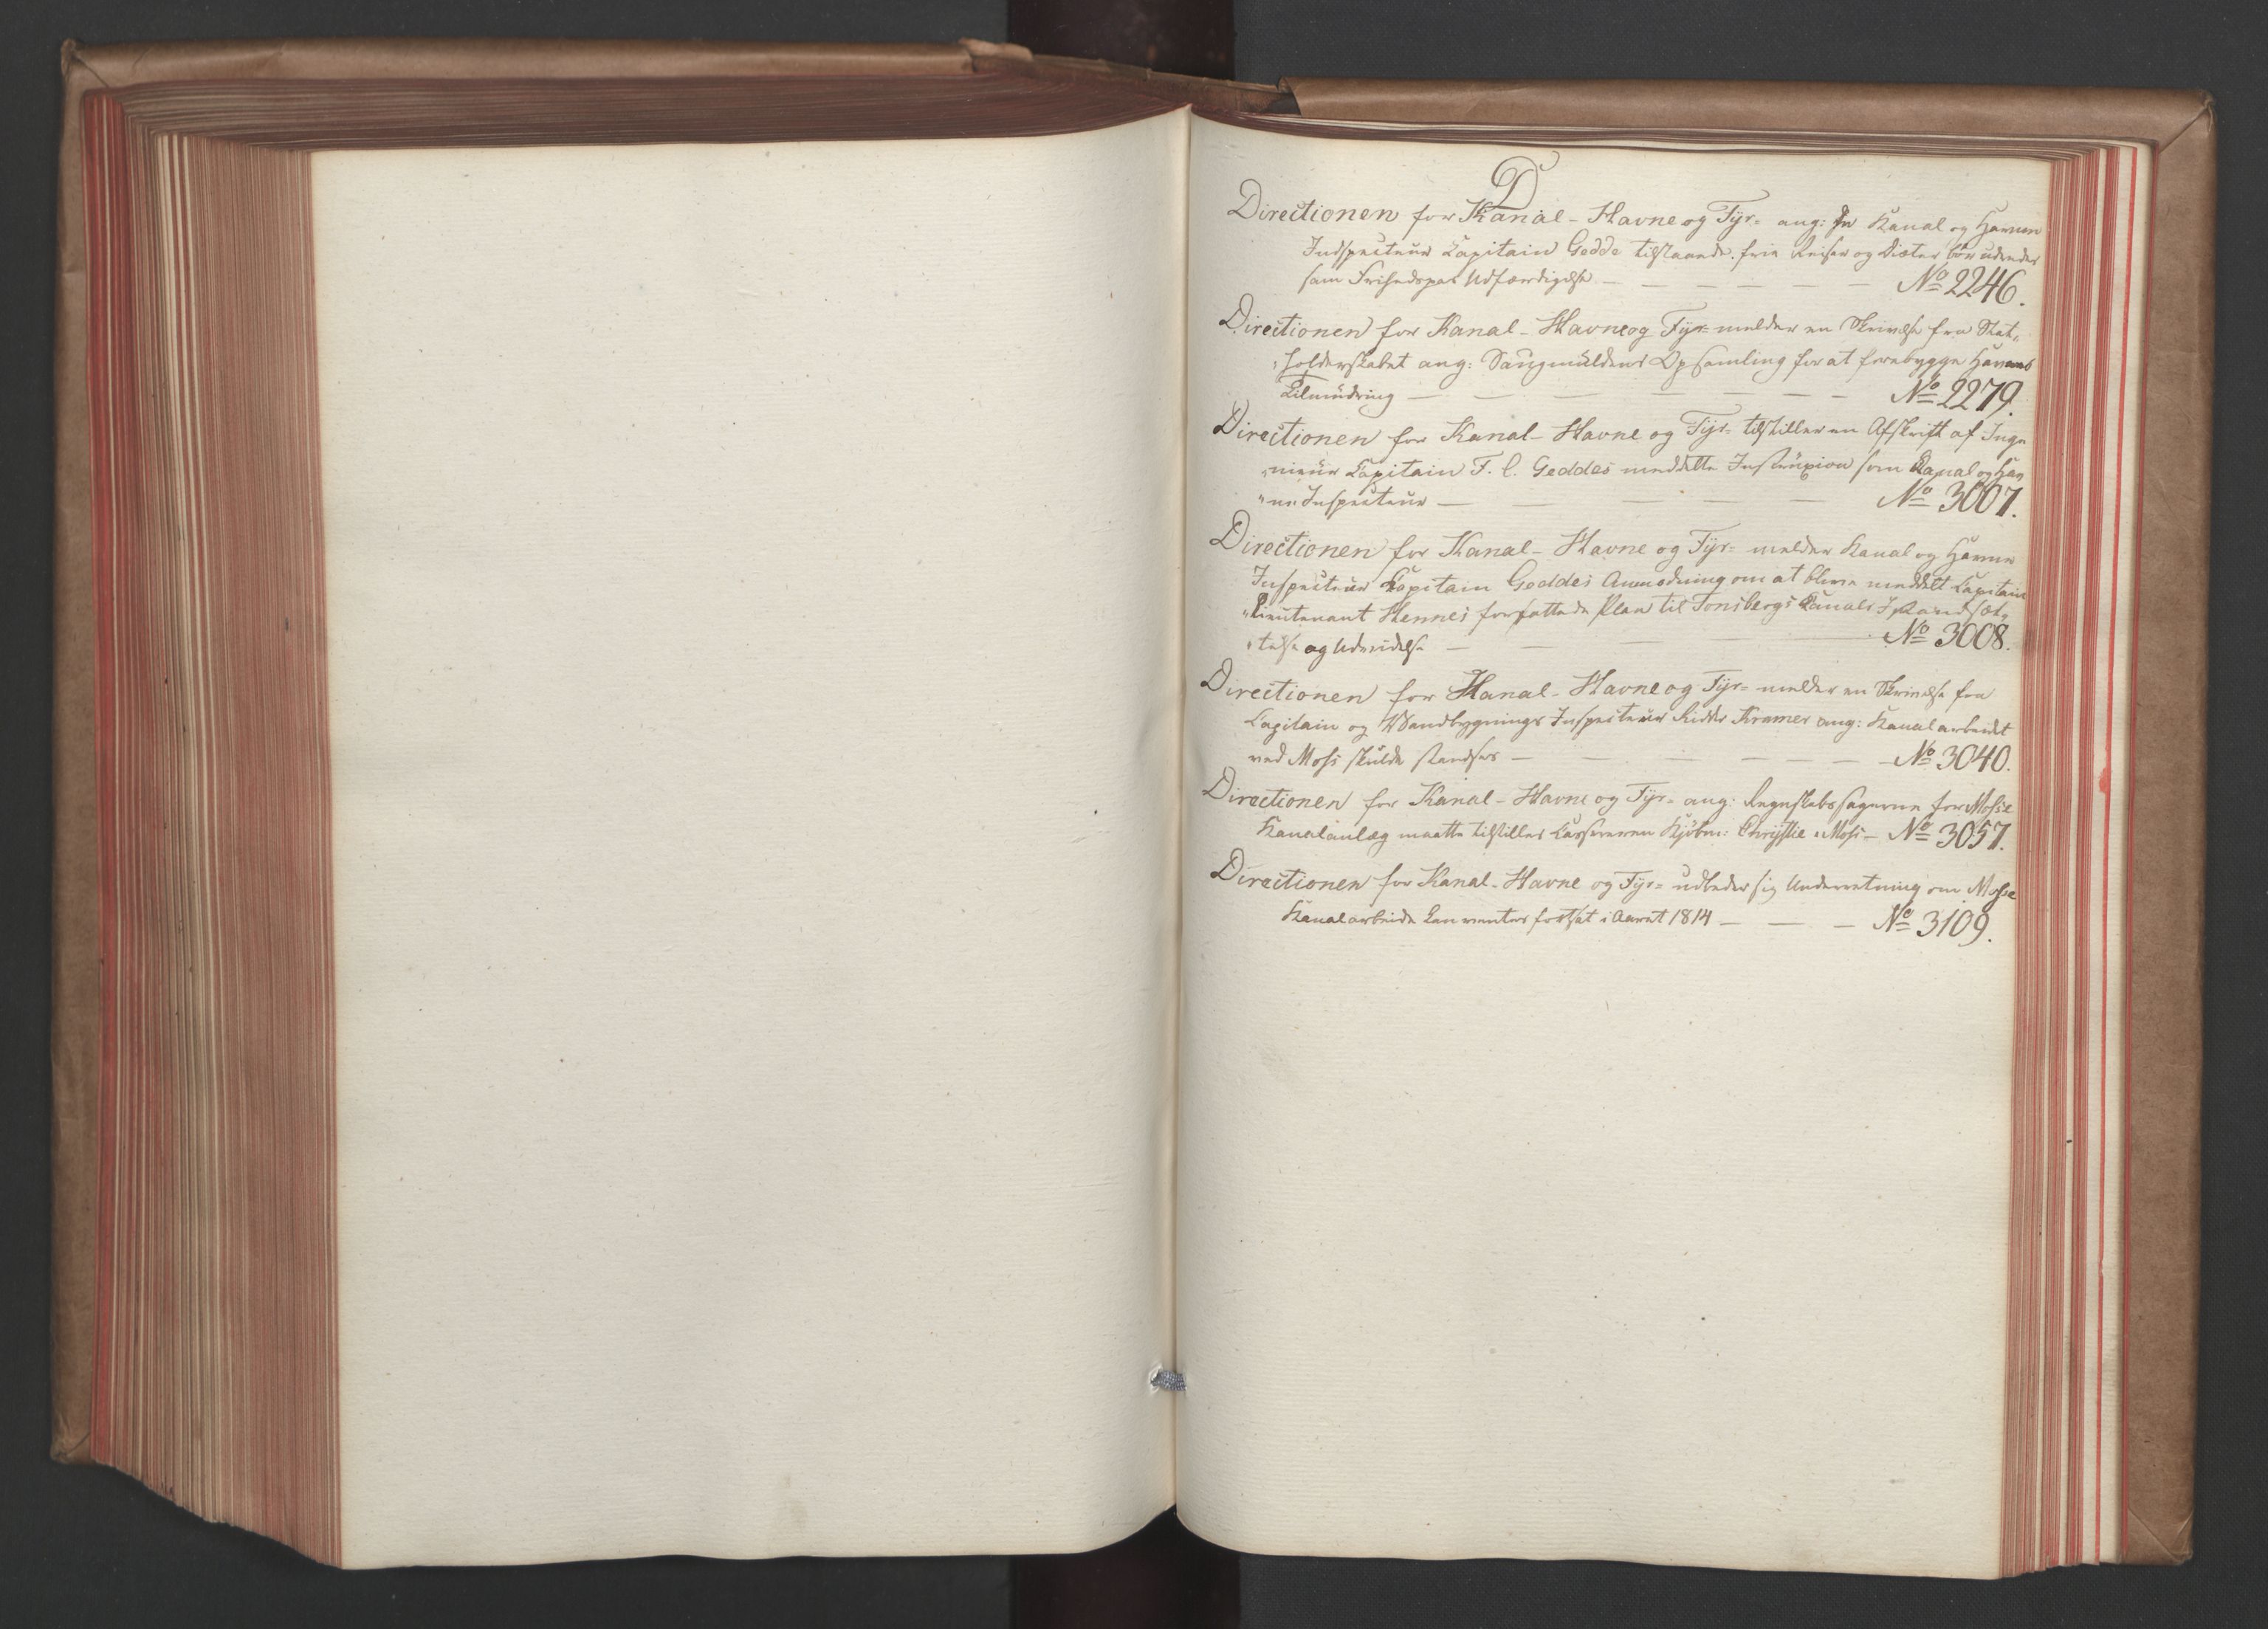 D
Directionen for Kanal- Havne og Fyr= ang: de Kanal og Havne
Indspecteur Capitain Gedde tilstaaede frie Reiser og Diæter bør udredes
sam Frihedspas Udfærdigelse — — — — — — No 2246.
Directionen for Kanal- Havne og Fyr= melder en Skrivelse fra Stat„
„holderskabet ang: Saugmuldens Opsamling for at forebygge Havnens
Tilmudring — — — — — — No 2279.
Directionen for Kanal- Havne og Fyr= tilstiller en Afskrift af Inge
„nieur Capitain F. C. Geddes meddelte Instruxion som Kanal og Hav
„ne Inspecteur — — — — No 3007.
Directionen for Kanal- Havne og Fyr= melder Kanal og Havne
Inspecteur Capitain Geddes Anmodning om at blive meddelt Capitain
„Lieutenant Hennes forfattede Plan til Tonsbergs Canals Istandsæt„
„telse og Udvidelse — — — — No 3008.
Directionen for Kanal- Havne og Fyr= melder en Skrivelse fra
Capitain og Vandbygnings Inspecteur Ridder Kramer ang: Kanalarbeidet
ved Moss skulde standses — — — — — — No 3040.
Directionen for Kanal- Havne og Fyr= ang: Regnskabssagerne for Mosse
Kanalanlæg maatte tilstilles Cassereren Kjøbm: Chrystie i Moss — No 3057.
Directionen for Kanal- Havne og Fyr= udbeder sig Underretning om Mosse
Kanalarbeide kan ventes fortsat i Aaret 1814 — — — No 3109.